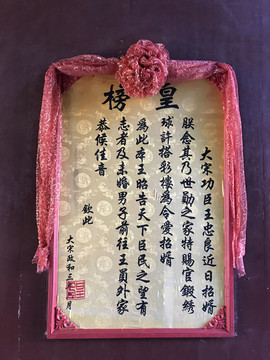 皇榜
大宋功臣王忠良近日招婿
朕念其乃世勋之家特赐官锻绣
球許搭彩樓為令愛招婿
為此本王昭告天下臣民之望有
志者及未婚男子前往王員外家
恭候佳音
欽此
大宋政和三年二月